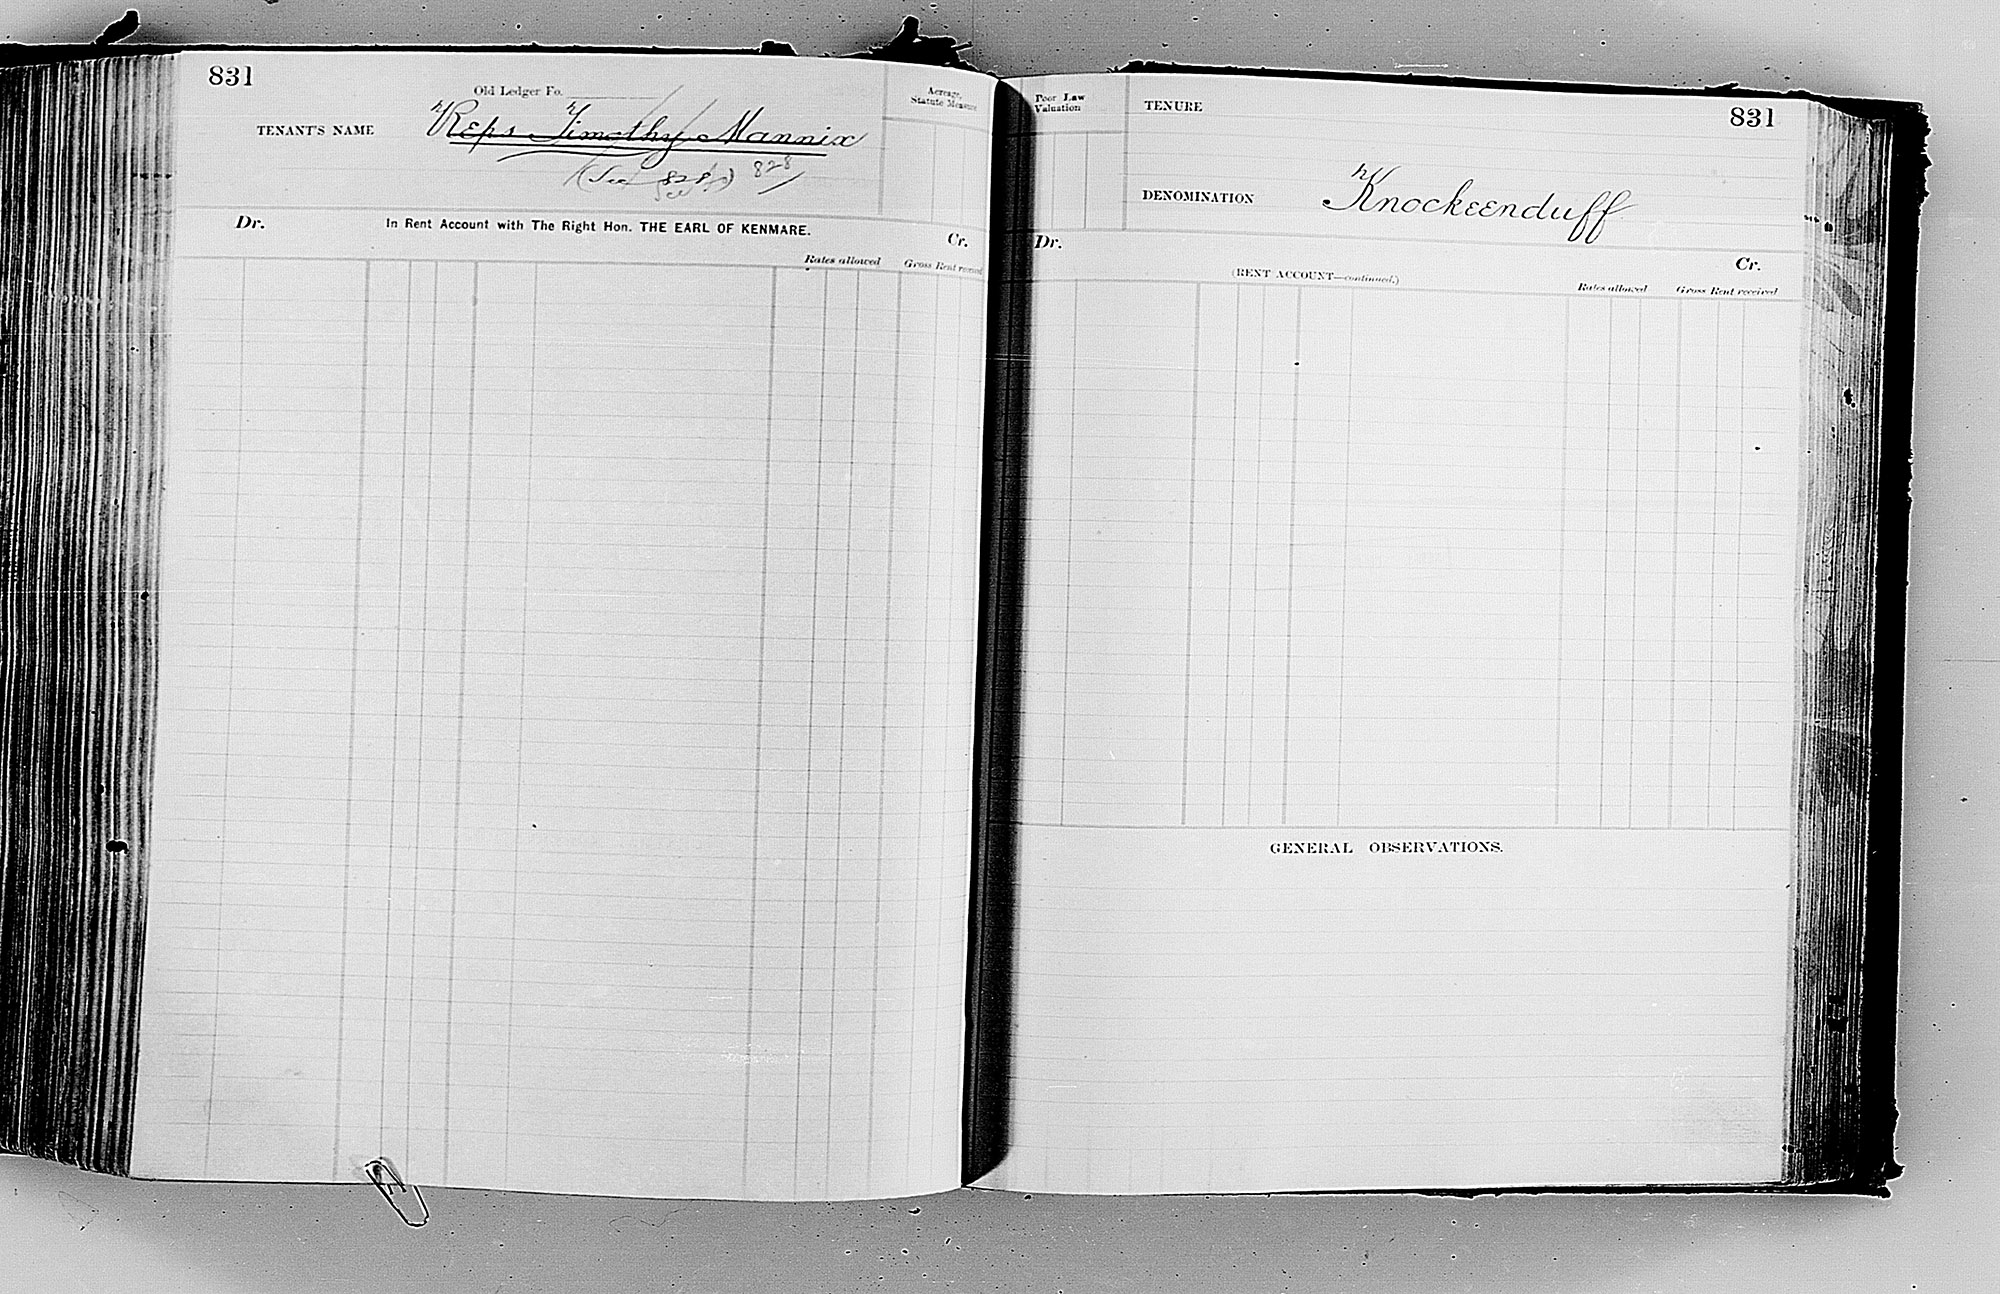 831
Old Ledger Fo.
TENANT'S NAME Reps Timothy Mannix
(See 828) 828
Acreage, Statute Measure
Dr. In Rent Account with The Right Hon. THE EARL OF KENMARE. Cr.
Rates allowed Gross Rent received
Poor Law Valuation
TENURE
831
DENOMINATION Knockeenduff
Dr. Cr.
(RENT ACCOUNT—continued.)
Rates allowed Gross Rent received
GENERAL OBSERVATIONS.